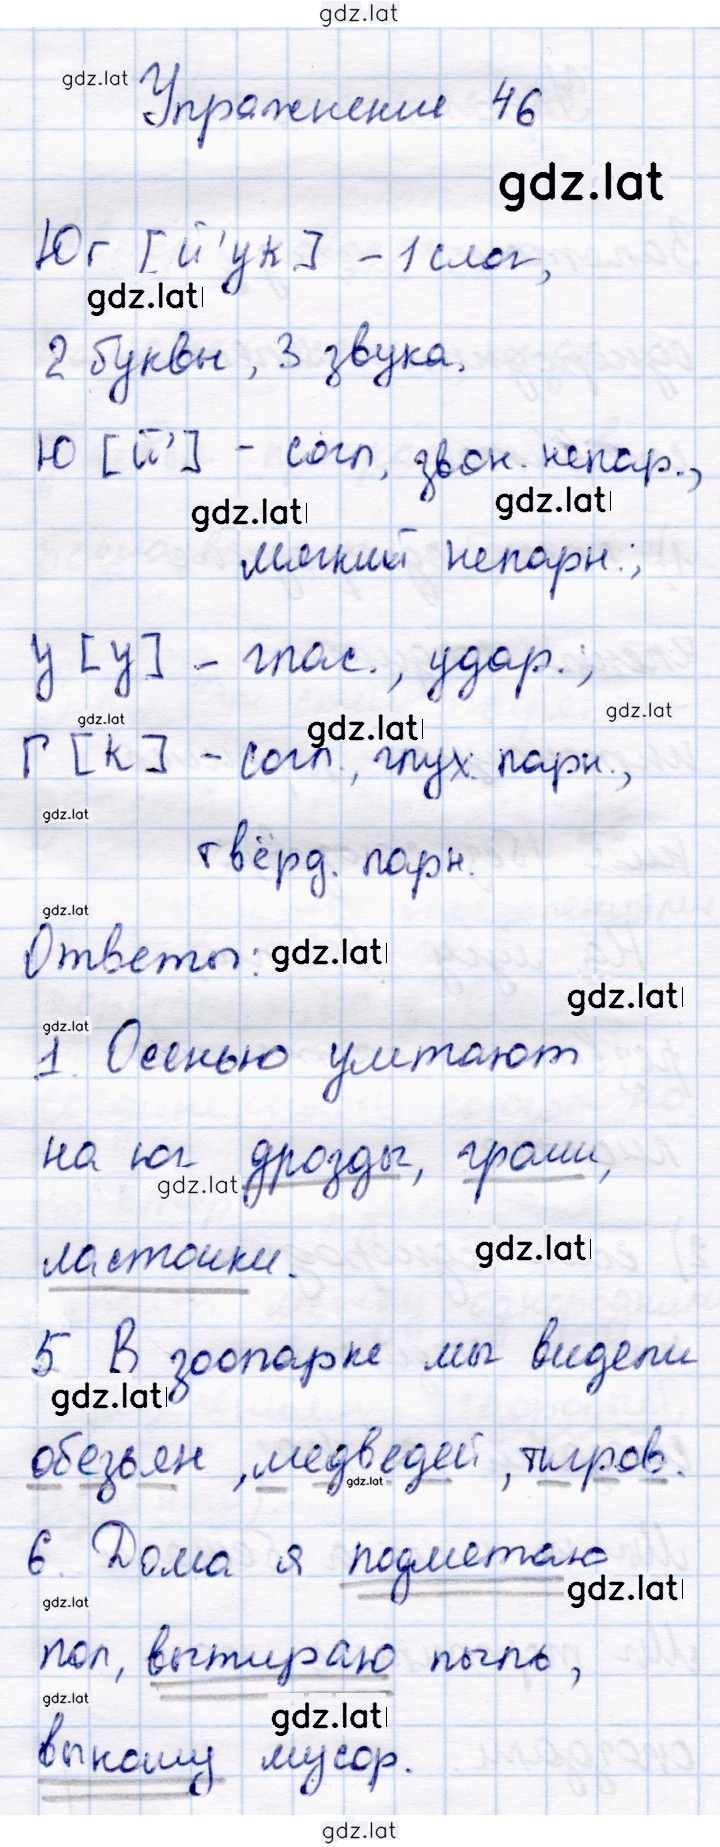 gdz.lat
gdz.lat
Упражнение 46
gdz.lat
Юг [й'ук] - 1 слог,
gdz.lat
2 буквы, 3 звука.
Ю [й'] - согл, звон. непар.,
gdz.lat gdz.lat
мягкий непарн.;
у [у] - глас., удар.;
gdz.lat gdz.lat gdz.lat
Г [к] - согл., глух. парн.,
gdz.lat
твёрд. парн.
gdz.lat
Ответы: gdz.lat
gdz.lat
gdz.lat
1. Осенью улетают
на юг дрозды, грачи,
gdz.lat
ласточки. gdz.lat
5 В зоопарке мы видели
gdz.lat
обезьян, медведей, тигров.
gdz.lat
6. Дома я подметаю
gdz.lat gdz.lat
пол, вытираю пыль,
gdz.lat gdz.lat
выношу мусор.
gdz.lat